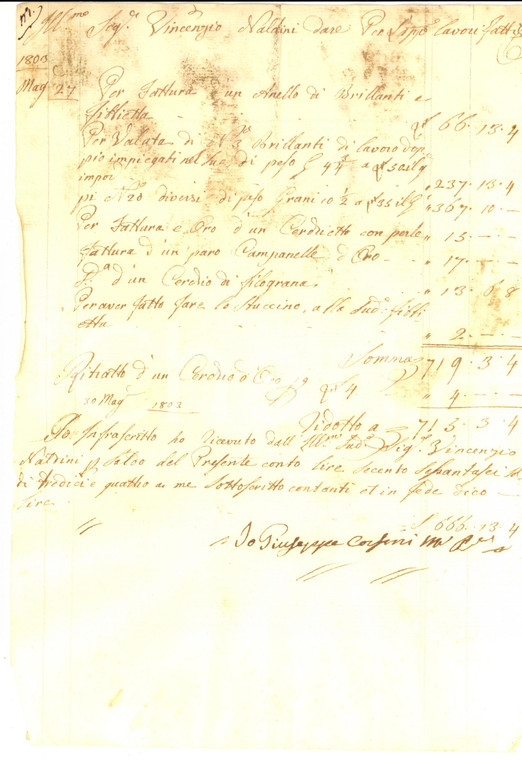 Ill.mo Sig.r Vincenzio Naldini dare Per l'apo lavori fatti
1803
Mag. 27 Per Fattura d'un Anello di Brillanti e
fittietta 66.13.4
Per Valuta di N. Brillanti di lavoro dop
pio impiegati nel di peso 44 a 50 il
impor 237.13.4
pi N 20 diversi di peso Grani 10 1/2 a 35 il 367.10.—
Per Fattura e Oro d'un Cerchietto con perle 15.—.—
Fattura d'un paro Campanelle d'Oro 17.—.—
d'un Cerchio di filograna 13.6.8
Per aver fatto fare lo stuccino, alla Sud.a
etta 2.—.—
Somma 719.3.4
Ritratto d'un Cerchio d'Oro 4 4.—.—
30 Mag. 1803 Ridotto a 715.3.4
Io Infrascritto ho ricevuto dall' Ill.mo Sud.o Sig.r Vincenzio
Naldini p Saldo del Presente conto lire secento
di tredici e quattro a me sottoscritto contanti et in fede dico
lire 666.13.4
Io Giuseppe Corsini